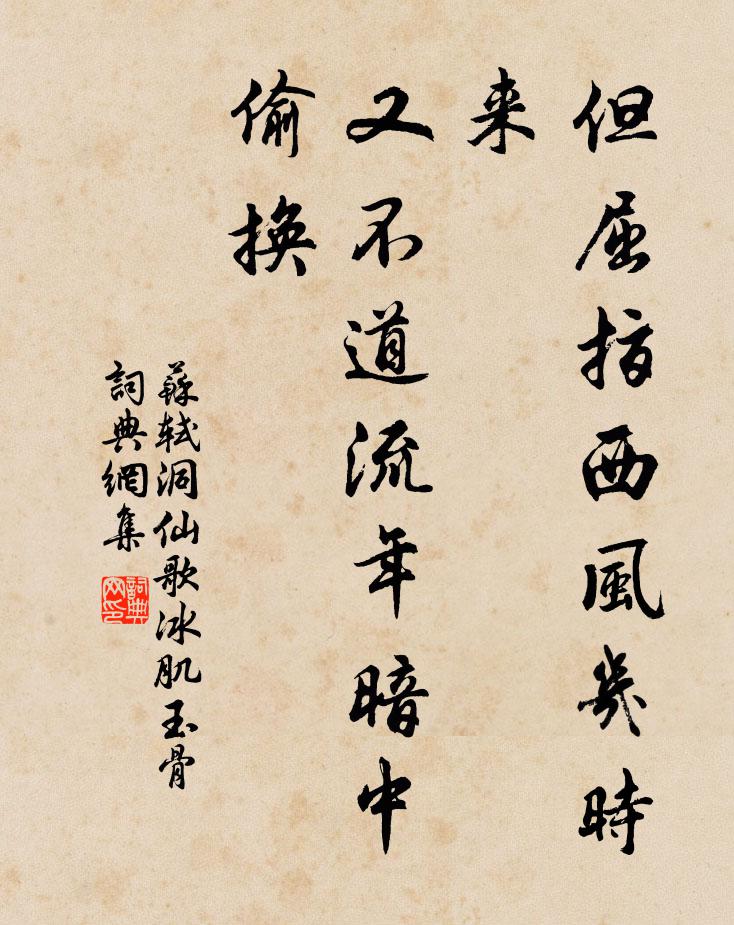 但屈指西風幾時
来
又不道流年暗中
偷換
蘇軾洞仙歌冰肌玉骨
詞典網集
詞典
网印